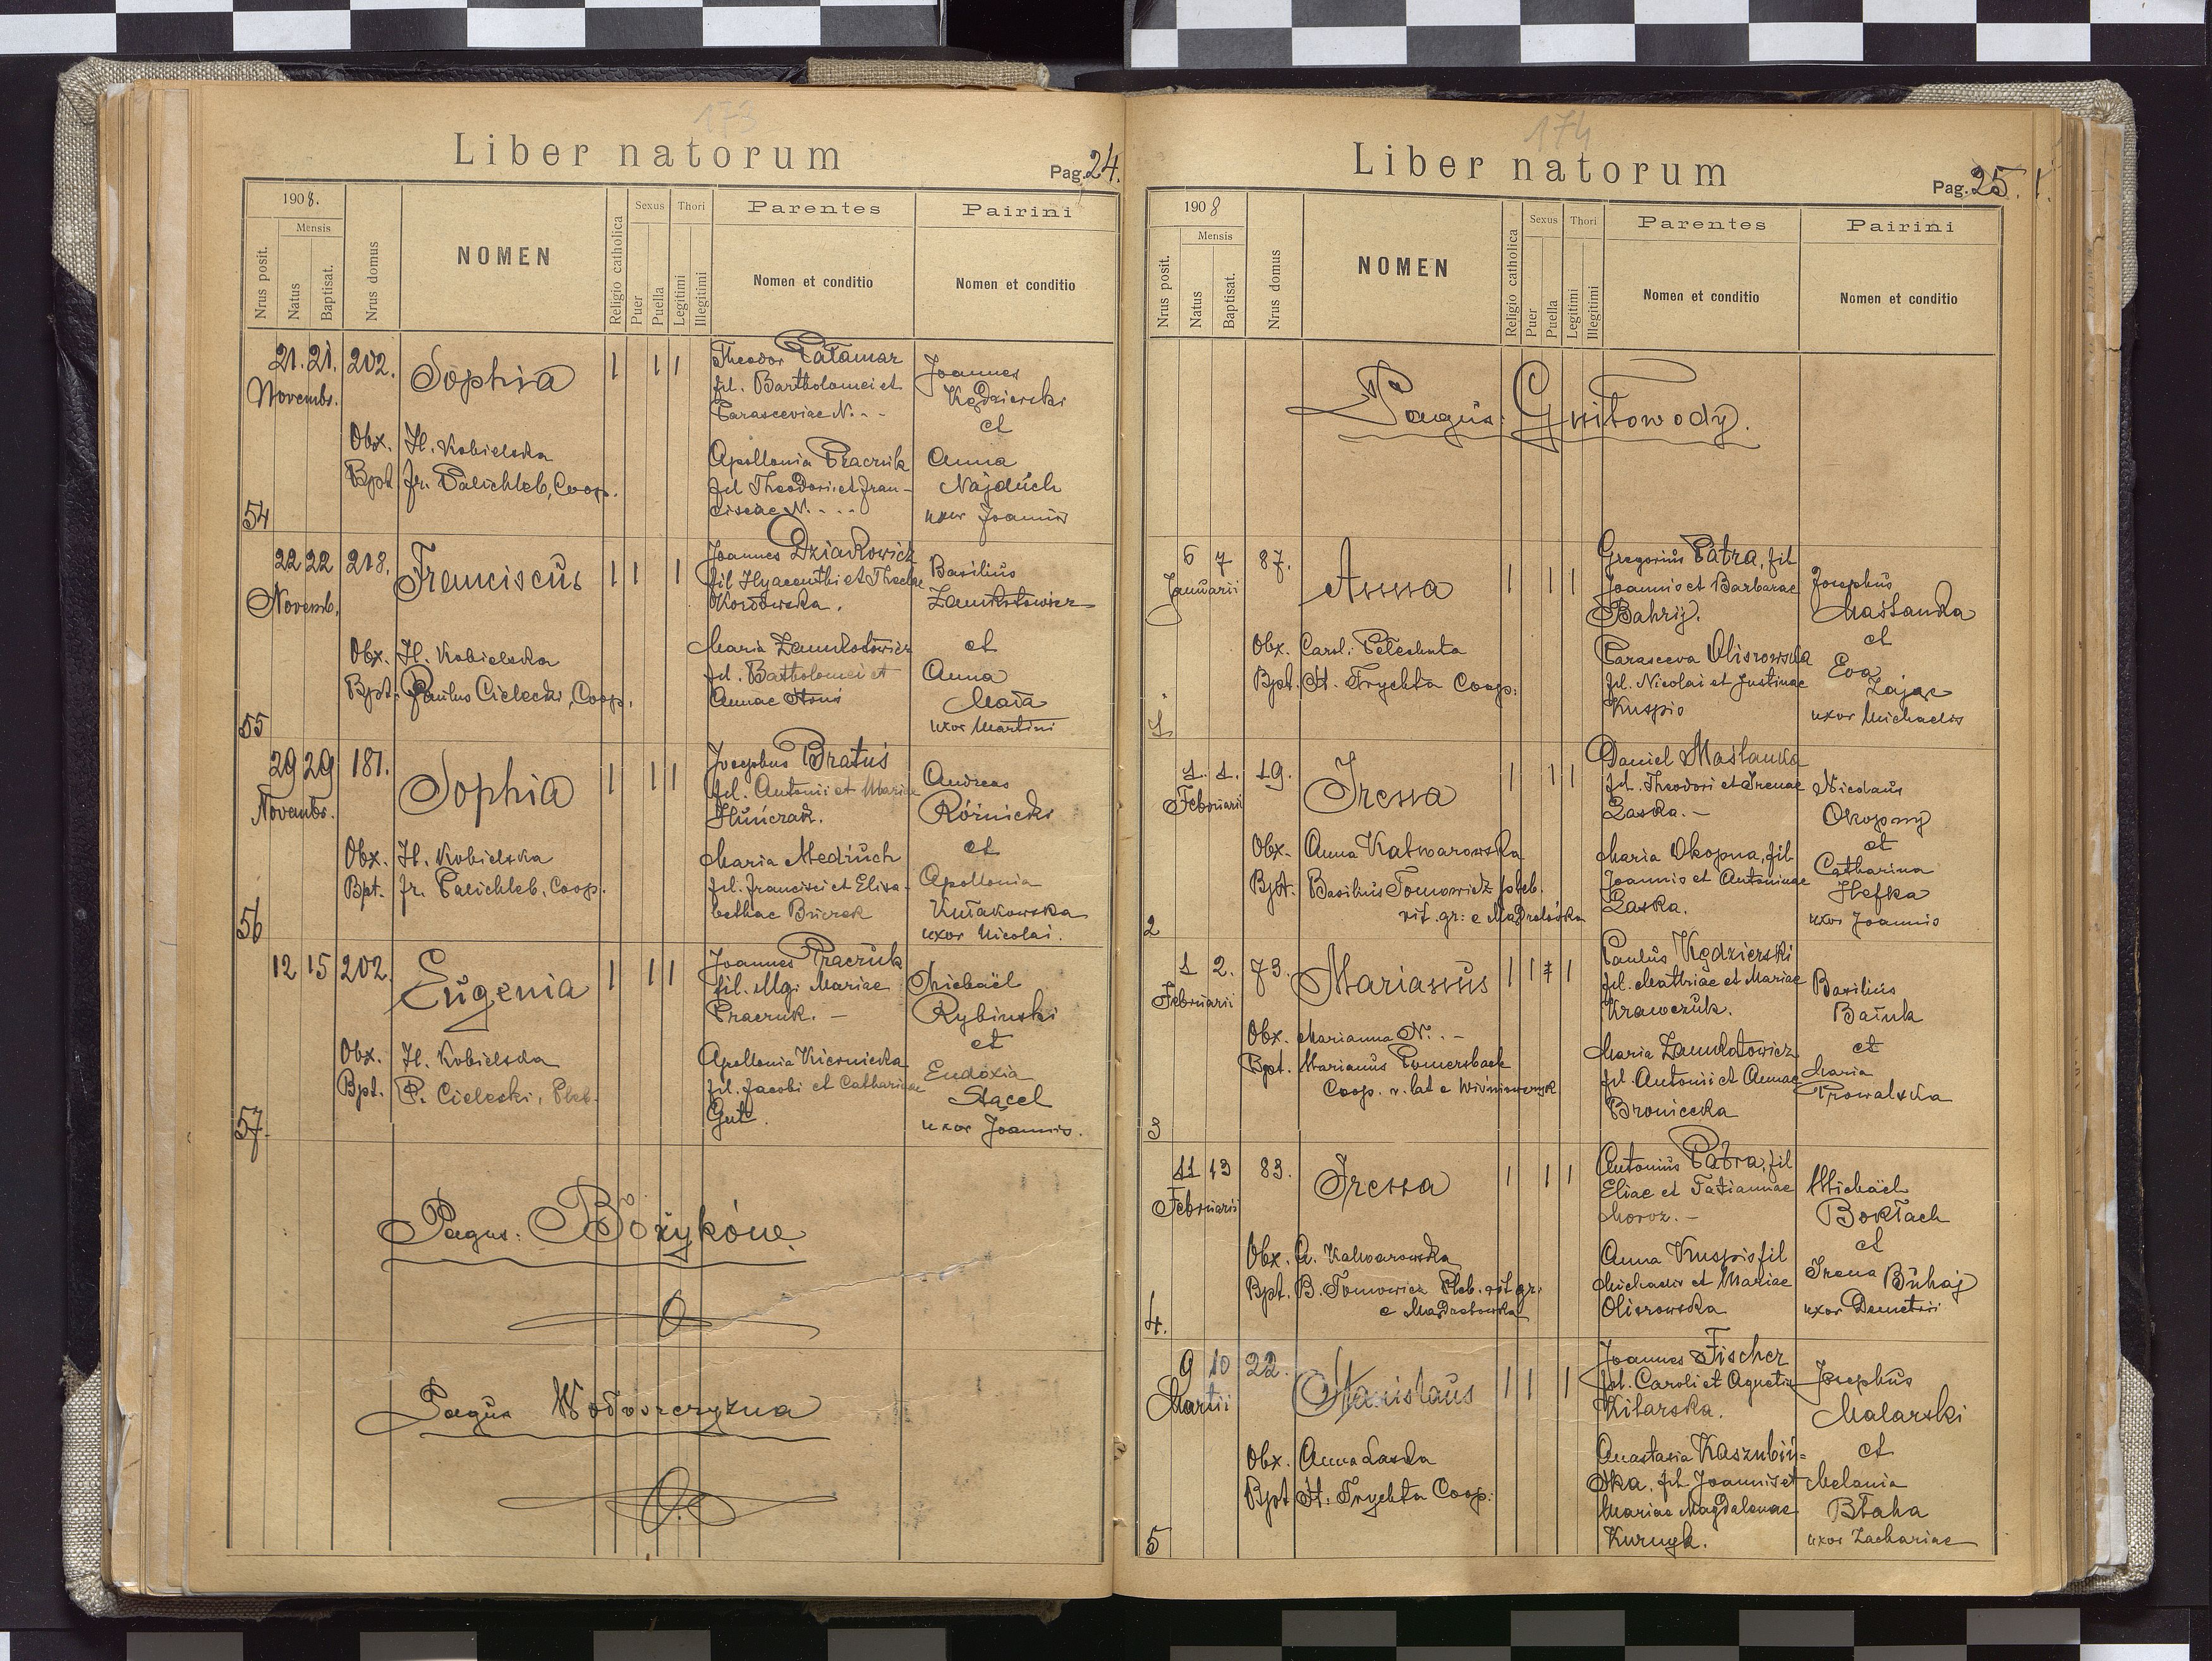 173
Liber natorum
Pag. 24.
1908.
Nrus posit.
Mensis
Natus
Baptisat.
Nrus domus
NOMEN
Religio catholica
Sexus
Puer
Puella
Thori
Legitimi
Illegitimi
Parentes
Nomen et conditio
Pairini
Nomen et conditio
54
21. 21. 202.
Novembr.
Sophia
1 1 1
Obx. H. Kobielska
Bpt fr. Palichleb, Coop.
Theodor Patamar
fil. Bartholomei et
Parasceviae N. - -
Apollonia Pracruk
fil Theodori et Fran-
ciscae N. - - -
Joannes
Kędzierski
et
Anna
Najduch
uxor Joannis
55
22 22 218.
Novemb.
Franciscus
1 1 1
Obx. H. Kobielska
Bpt. Paulus Cielecki, Coop.
Joannes Dziadkowicz
fil Hyacenthi et Theclae
Kordowska.
Maria Zamkotowicz
fil. Bartholomei et
Annae
Basilius
Zamkotowicz
et
Anna
Mada
uxor Martini
56
29 29 181.
Novembr.
Sophia
1 1 1
Obx. H. Kobielska
Bpt. fr. Palichleb, Coop.
Josephus Bratus
fil. Antonii et Mariae
Huńczak.
Maria Mediuch
fil. Francisci et Elisa-
bethae
Andreas
Róznicki
et
Apollonia
Kułakowska
uxor Nicolai.
57.
12 15 202.
Eugenia
1 1 1
Obx. H. Kobielska
Bpt. P. Cielecki, Pleb.
Joannes Pracruk
fil. Mg. Mariae
Pracruk. -
Apollonia Kiernicka
fil. Jacobi et Catharinae
Gut.
Michaël
Rybinski
et
Eudoxia
Stącel
uxor Joannis.
Pagus: Bożyków.
Pagus Wodworeryzna
174
Liber natorum
Pag. 25. 1.
1908
Nrus posit.
Mensis
Natus
Baptisat.
Nrus domus
NOMEN
Religio catholica
Sexus
Puer
Puella
Thori
Legitimi
Illegitimi
Parentes
Nomen et conditio
Pairini
Nomen et conditio
Pagus: Gniłowody.
1.
6 7 87.
Januarii
Anna
1 1 1
Obx. Carol. Pełechata
Bpt. St. Trychta Coop:
Gregorius Patra, fil
Joannis et Barbarae
Bahrij.
Parasceva Olisrowska
fil. Nicolai et Justinae
Kuspis
Josephus
Maślanka
et
Eva
Zając
uxor Michaelis
2
1. 1. 19.
Februarii
Irena
1 1 1
Obx. Anna Kalwarowska
Bpt. Basilius Tomowicz pleb.
rit. gr: e Mądzelówka
Daniel Maślanka
fil. Theodori et Irenae
Laska. -
Maria Okopna, fil
Joannis et Antoninae
Laska.
Nicolaus
Okopny
et
Catharina
Hefka
uxor Joannis
3
1 2. 73.
Februarii
Marianus
1 1 1
Obx. Marianna N. . -
Bpt. Marianus Pomersbach
Coop. r. lat e Wiśniowczyk
Paulus Kędzierski
fil. Mathiae et Mariae
Krawczuk.
Maria Zamkotowicz
fil. Antonii et Annae
Broniecka
Basilius
Baiuk
et
Maria
Prowalska
4.
11 13 83.
Februarii
Irena
1 1 1
Obx. A. Kalwarowska
Bpt. B. Tomowicz Pleb. rit gr.
e Mądzelówka
Antonius Patra, fil
Eliae et Tatiannae
Moroz. -
Anna Kuspis fil
Michaelis et Mariae
Olisrowska
Michaël
Bokłach
et
Irena Buhaj
uxor Demetrii
5
9 10 22.
Martii
Stanislaus
1 1 1
Obx. Anna Laska
Bpt St. Trychta Coop:
Joannes Fischer
fil. Caroli et Agnetis
Kitarska.
Anastasia Kaszubiń-
ska, fil Joannis et
Mariae Magdalenae
Kurnyk.
Josephus
Malarski
et
Melania
Błaha
uxor Zachariae